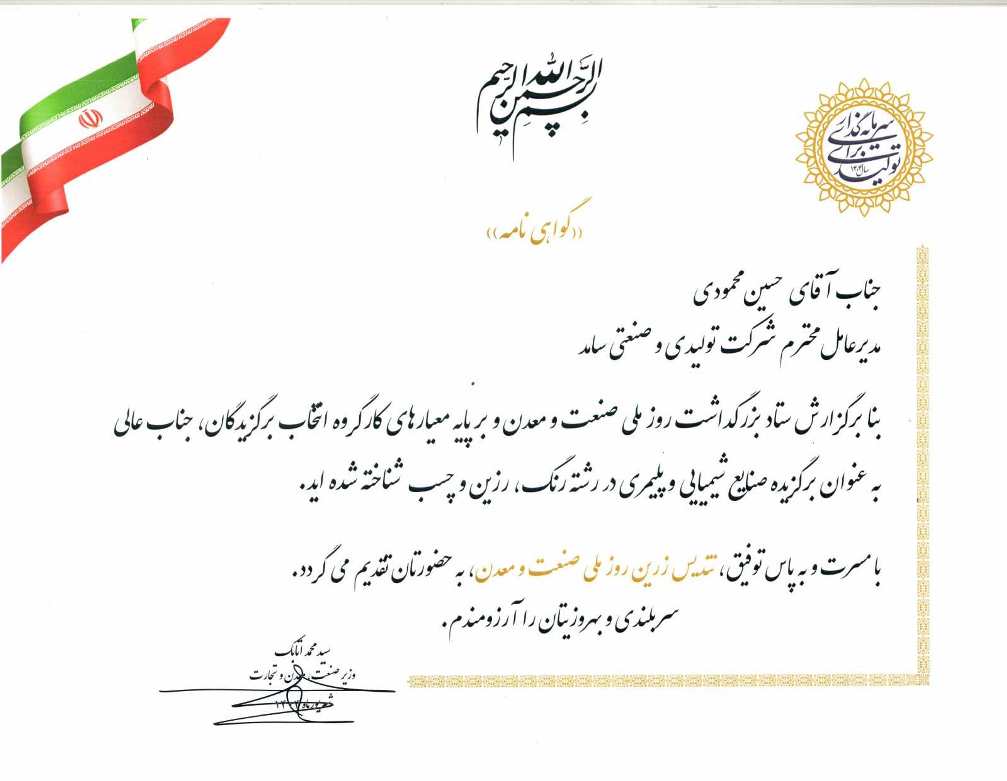 بسم الله الرحمن الرحیم
سرمایه‌گذاری
برای
تولید
سال ۱۴۰۴
((گواهی نامه))
جناب آقای حسین محمودی
مدیرعامل محترم شرکت تولیدی و صنعتی سامد
بنا بر گزارش ستاد بزرگداشت روز ملی صنعت و معدن و بر پایه معیارهای کارگروه انتخاب برگزیدگان، جناب عالی
به عنوان برگزیده صنایع شیمیایی و پلیمری در رشته رنگ، رزین و چسب شناخته شده اید.
با مسرت و به پاس توفیق، تندیس زرین روز ملی صنعت و معدن، به حضورتان تقدیم می گردد.
سربلندی و بهروزیتان را آرزومندم.
سید محمد اتابک
وزیر صنعت، معدن و تجارت